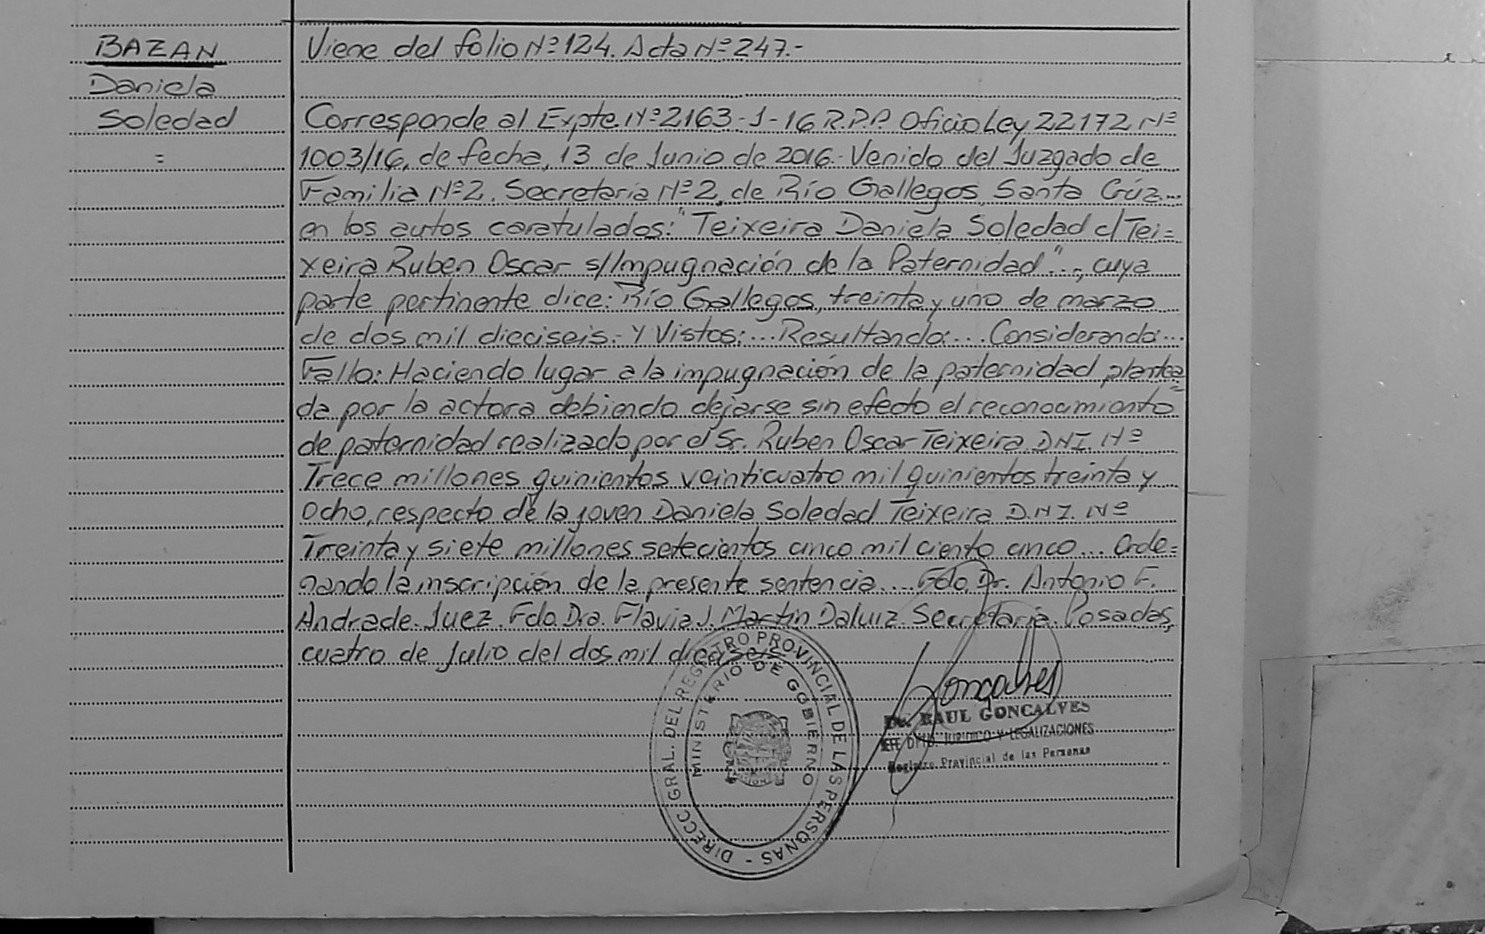 BAZAN
Daniela
Soledad
=
Viene del folio Nº 124. Acta Nº 247.-
Corresponde al Expte Nº 2163-J-16 R.P.P. Oficio Ley 22172 Nº
1003/16, de fecha, 13 de Junio de 2016. Venido del Juzgado de
Familia Nº 2. Secretaria Nº 2, de Río Gallegos, Santa Crúz...
en los autos caratulados: "Teixeira Daniela Soledad c/ Tei=
xeira Ruben Oscar s/ Impugnación de la Paternidad"-, cuya
parte pertinente dice: Río Gallegos, treinta y uno de marzo
de dos mil dieciseis.- Y Vistos:... Resultando:... Considerando:...
Fallo: Haciendo lugar a la impugnación de la paternidad plantea=
da por la actora debiendo dejarse sin efecto el reconocimiento
de paternidad realizado por el Sr. Ruben Oscar Teixeira D.N.I. Nº
Trece millones quinientos veinticuatro mil quinientos treinta y
ocho, respecto de la joven Daniela Soledad Teixeira D.N.I. Nº
Treinta y siete millones setecientos cinco mil ciento cinco... Orde=
nando la inscripción de la presente sentencia.... Fdo. Dr. Antonio F.
Andrade. Juez. Fdo. Dra. Flavia J. Martin Daluiz. Secretaria. Posadas,
cuatro de Julio del dos mil dieciseis
DIRECC. GRAL. DEL REGISTRO PROVINCIAL DE LAS PERSONAS -
MINISTERIO DE GOBIERNO
Goncalves
Dr. RAUL GONCALVES
JEFE DPTO. JURIDICO Y LEGALIZACIONES
Registro Provincial de las Personas